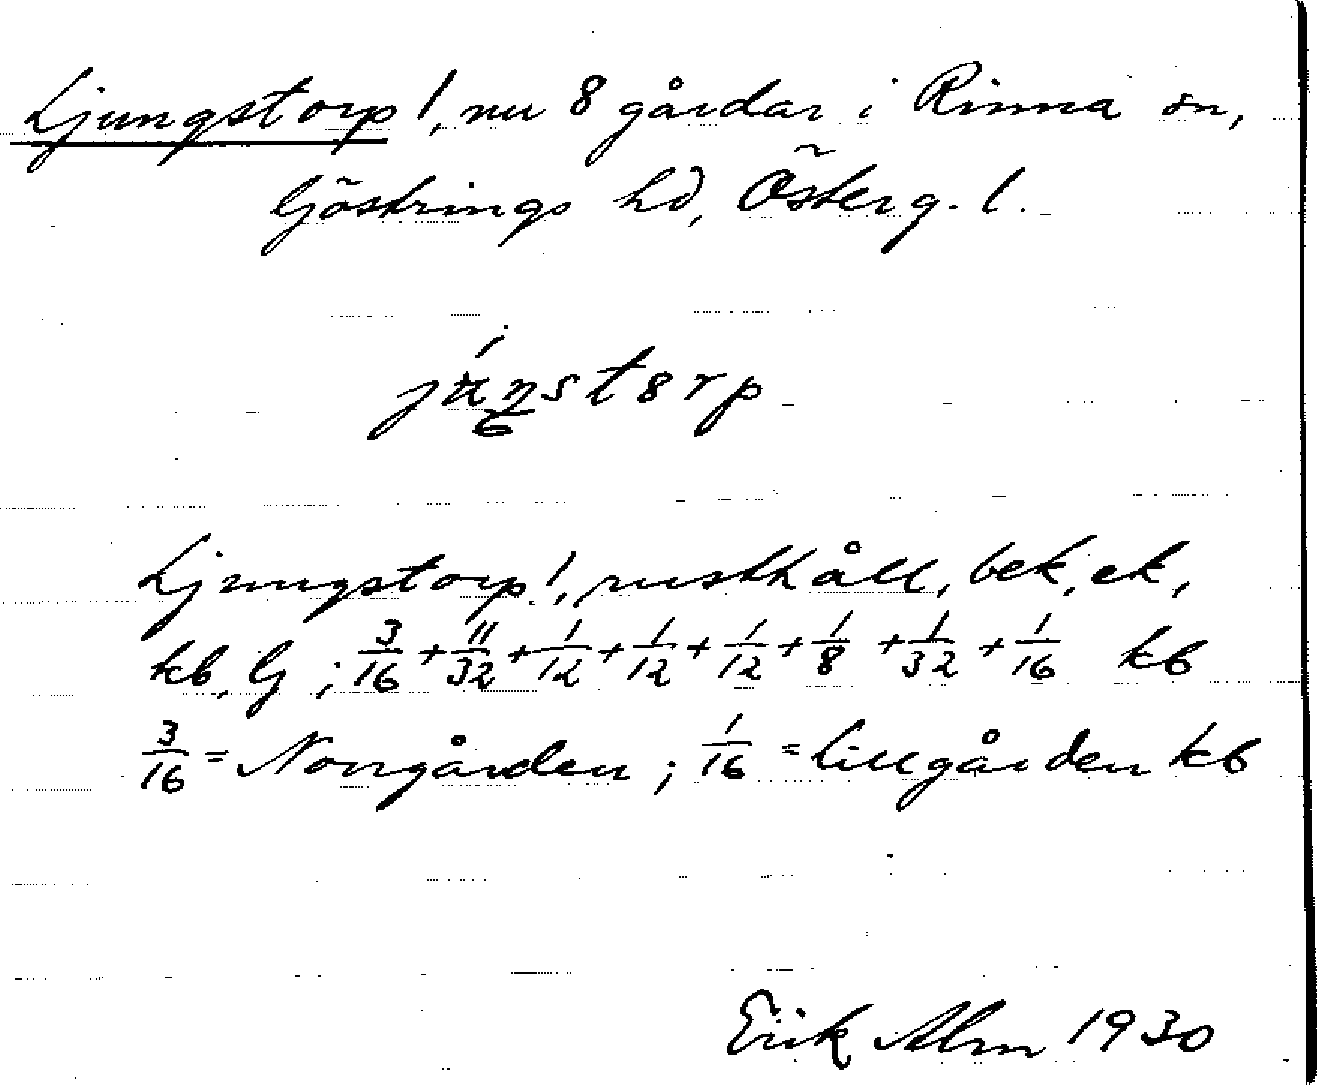 Ljungstorp 1, nu 8 gårdar i Rinna sn,
Göstrings hd, Österg. l.
Ljungstorp 1, rusthåll, bek, ek,
kb, lj; 3/16 + 11/32 + 1/12 + 1/12 + 1/12 + 1/8 + 1/32 + 1/16 kb
3/16 = Norrgården; 1/16 = Lillgården kb
Erik Alm 1930